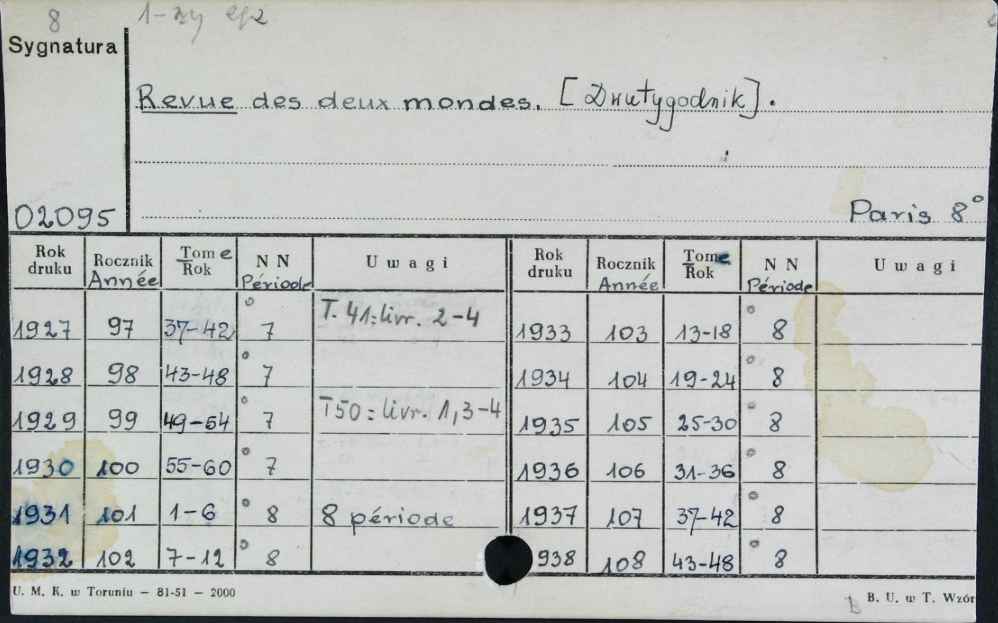 8 1-zy egz
Sygnatura
Revue des deux mondes. [Dwutygodnik].
02095 Paris 8°
Rok druku Rocznik Année Tome Rok N N Période U w a g i Rok druku Rocznik Année Tome Rok N N Période U w a g i
1927 97 37-42 °7 T. 41: livr. 2-4 1933 103 13-18 °8
1928 98 43-48 °7 1934 104 19-24 °8
1929 99 49-54 °7 T50: livr. 1,3-4 1935 105 25-30 °8
1930 100 55-60 °7 1936 106 31-36 °8
1931 101 1-6 °8 8 période 1937 107 37-42 °8
1932 102 7-12 °8 938 108 43-48 °8
U. M. K. w Toruniu – 81-51 – 2000 B. U. w T. Wzór